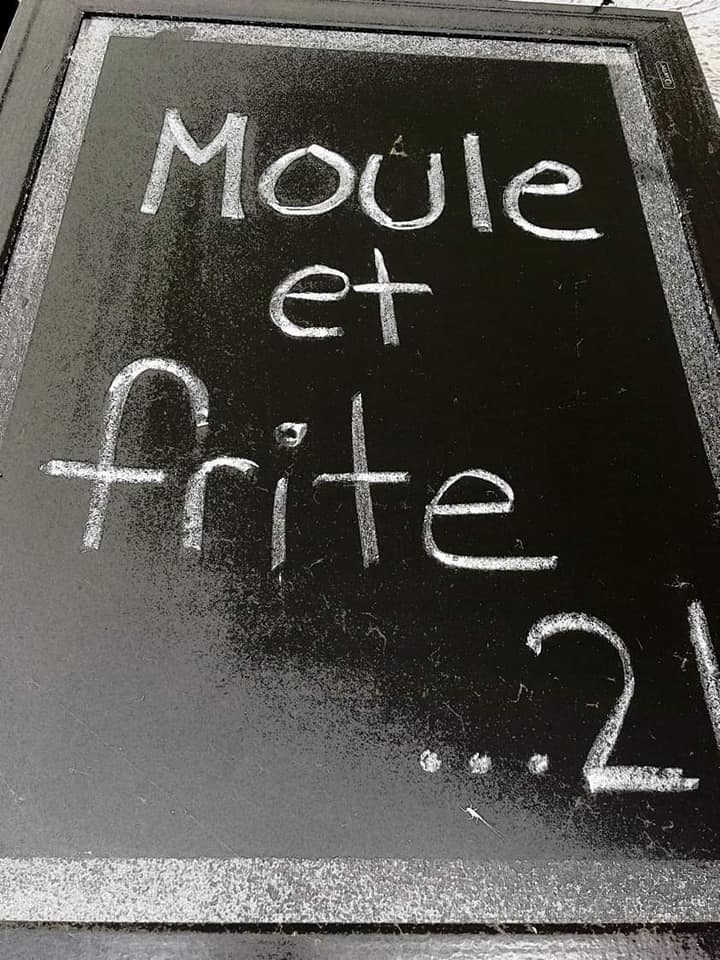 Moule
et
frite
...2